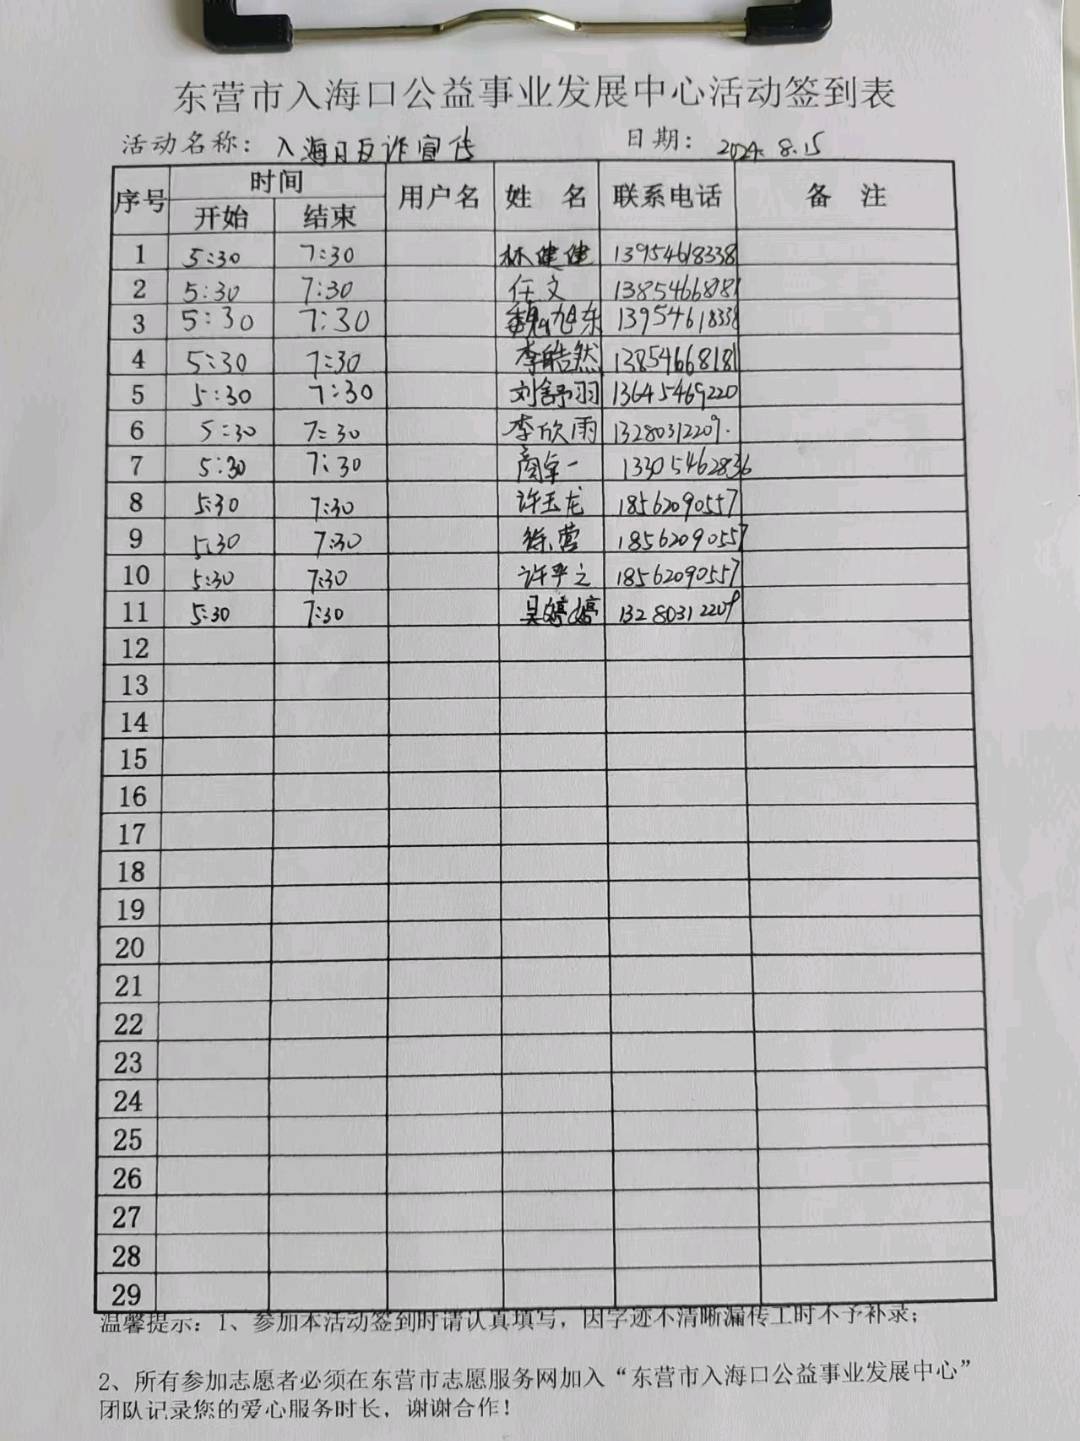 东营市入海口公益事业发展中心活动签到表
活动名称：入海口反诈宣传 日期：2024.8.15
序号 时间 用户名 姓名 联系电话 备注
开始 结束
1 5:30 7:30 林健健 13954618338
2 5:30 7:30 任文 13854668181
3 5:30 7:30 魏旭东 13954618338
4 5:30 7:30 李皓然 13854668181
5 5:30 7:30 刘舒羽 13645469220
6 5:30 7:30 李欣雨 13280312209.
7 5:30 7:30 商卓一 13305462836
8 5:30 7:30 许玉龙 18562090557
9 5:30 7:30 徐营 18562090557
10 5:30 7:30 许平之 18562090557
11 5:30 7:30 吴婷婷 13280312209
12
13
14
15
16
17
18
19
20
21
22
23
24
25
26
27
28
29
温馨提示：1、参加本活动签到时请认真填写，因字迹不清晰漏传工时不予补录；
2、所有参加志愿者必须在东营市志愿服务网加入“东营市入海口公益事业发展中心”
团队记录您的爱心服务时长，谢谢合作！